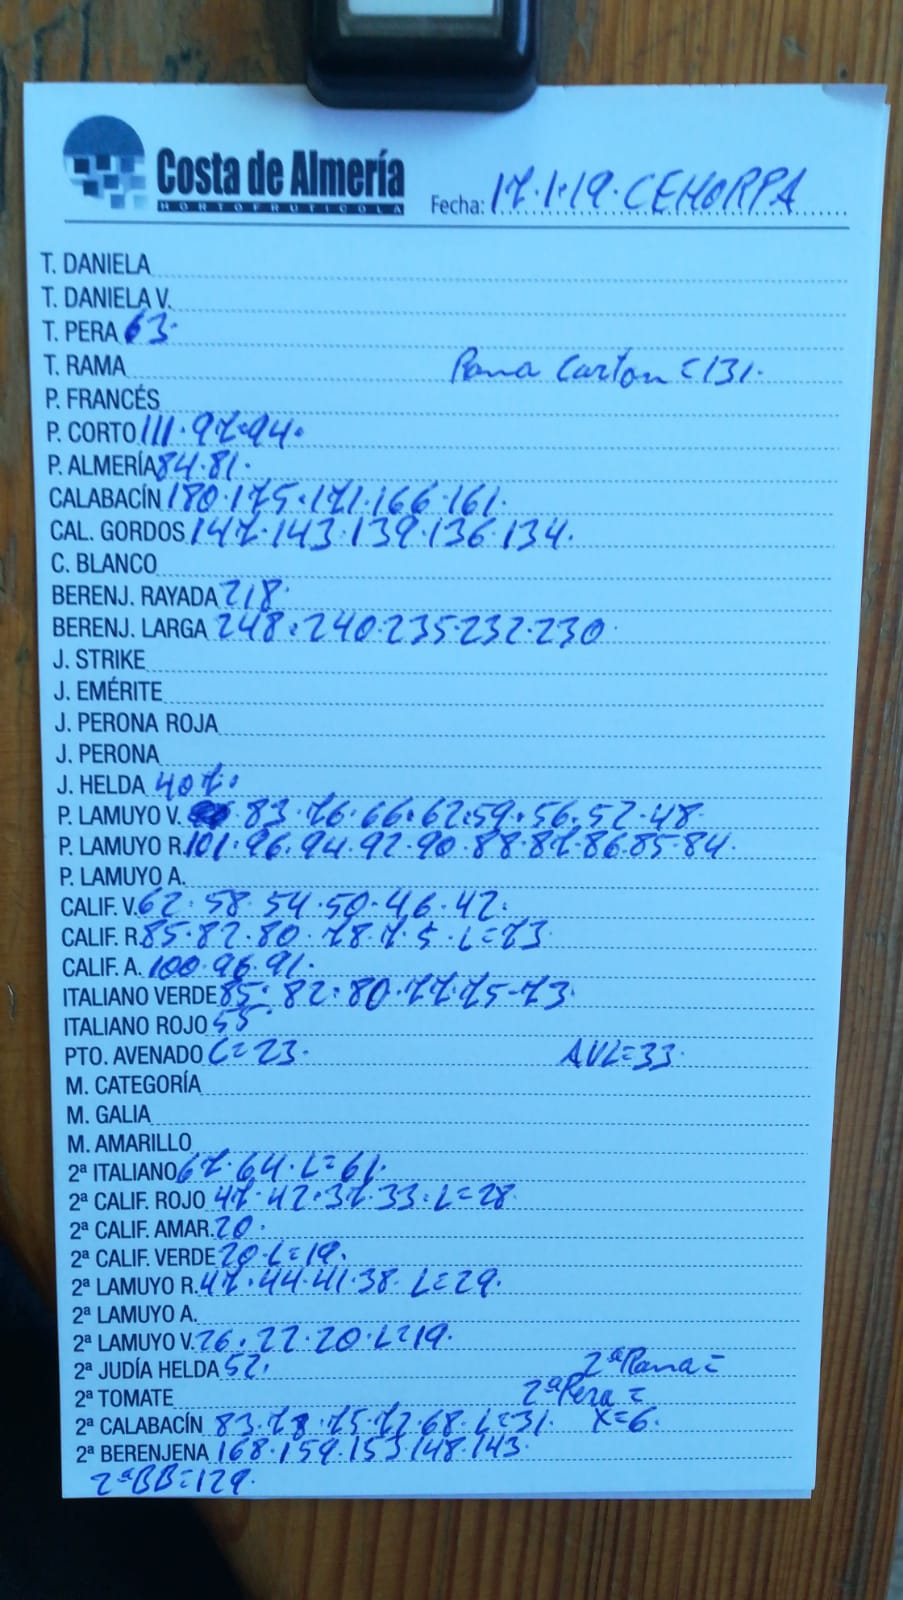 Costa de Almería
HORTOFRUTICOLA
Fecha: 17.1.19. CEHORPA
T. DANIELA
T. DANIELA V.
T. PERA 63.
T. RAMA Rama Carton = 131.
P. FRANCÉS
P. CORTO 111.97.94.
P. ALMERÍA 84.81.
CALABACÍN 180.175.171.166.161.
CAL. GORDOS 147.143.139.136.134.
C. BLANCO
BERENJ. RAYADA 218.
BERENJ. LARGA 248.240.235.232.230.
J. STRIKE
J. EMÉRITE
J. PERONA ROJA
J. PERONA
J. HELDA 407.
P. LAMUYO V. 83.76.66.62.59.56.52.48.
P. LAMUYO R. 101.96.94.92.90.88.87.86.85.84.
P. LAMUYO A.
CALIF. V. 62.58.54.50.46.42.
CALIF. R. 85.82.80.78.75.L=73
CALIF. A. 100.96.91.
ITALIANO VERDE 85.82.80.77.75-73.
ITALIANO ROJO 55
PTO. AVENADO L=23. AVL=33.
M. CATEGORÍA
M. GALIA
M. AMARILLO
2ª ITALIANO 67.64.L=61.
2ª CALIF. ROJO 47.42.37.33.L=28
2ª CALIF. AMAR. 20.
2ª CALIF. VERDE 20.L=19.
2ª LAMUYO R. 47.44.41.38. L=29.
2ª LAMUYO A.
2ª LAMUYO V. 26.22.20.L=19.
2ª JUDÍA HELDA 52. 2ªRama=
2ª TOMATE 2ªPera=
2ª CALABACÍN 83.78.75.72.68.L=31. X=6.
2ª BERENJENA 168.159.153.148.143.
2ªBB=129.